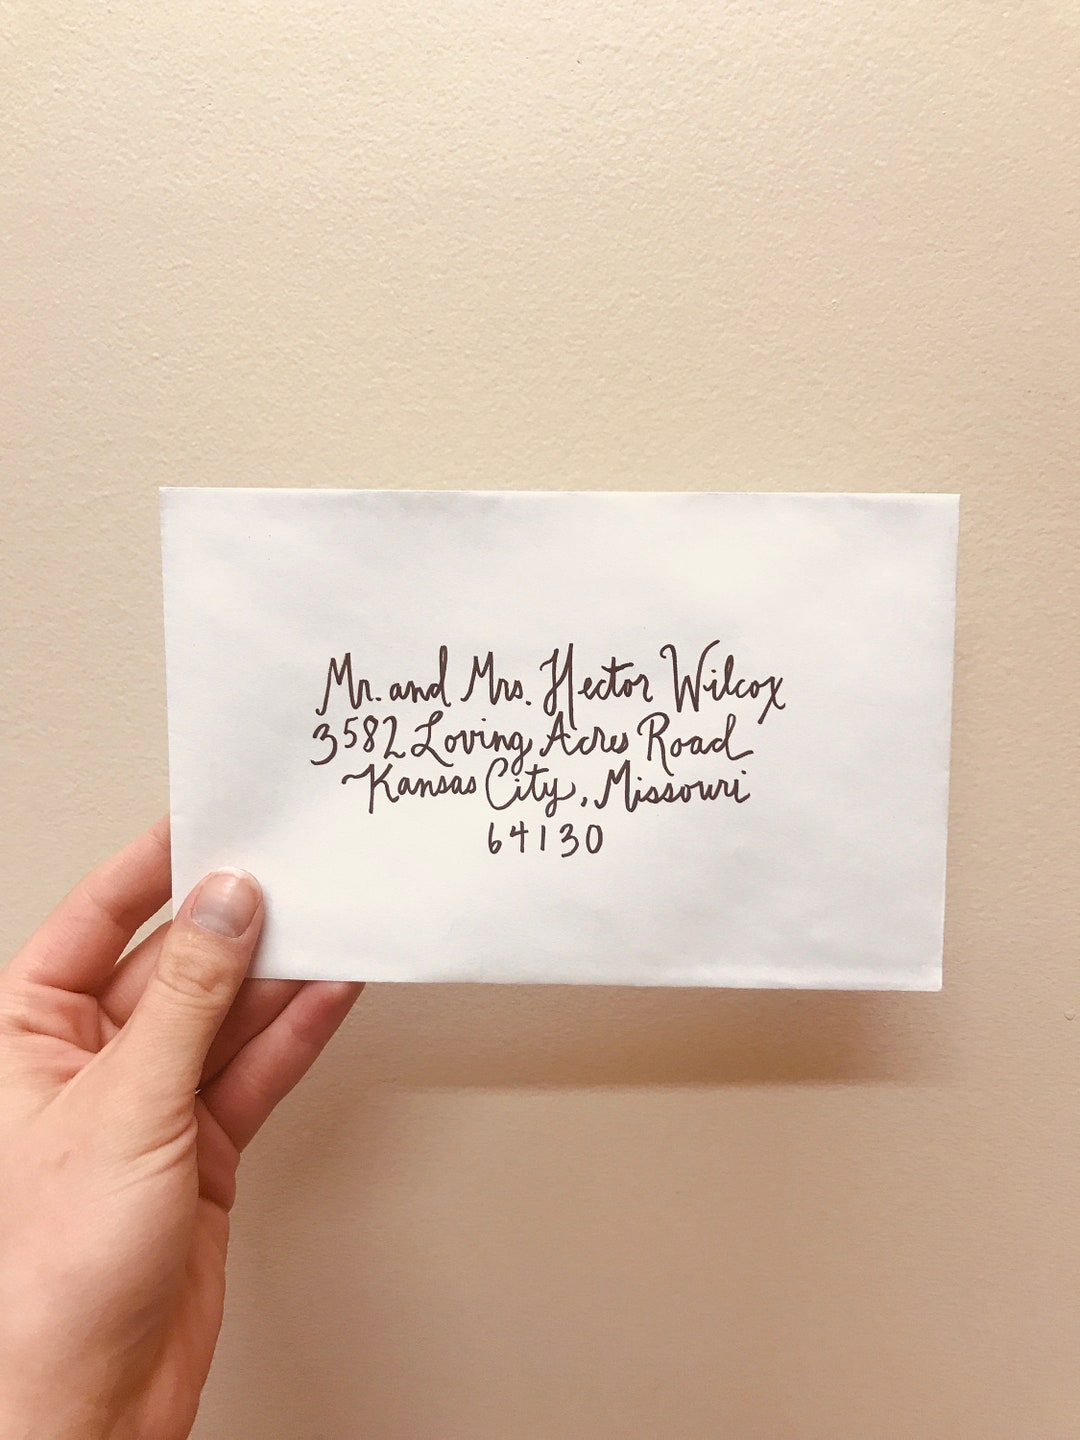 Mr. and Mrs. Hector Wilcox
3582 Loving Acres Road
Kansas City, Missouri
64130